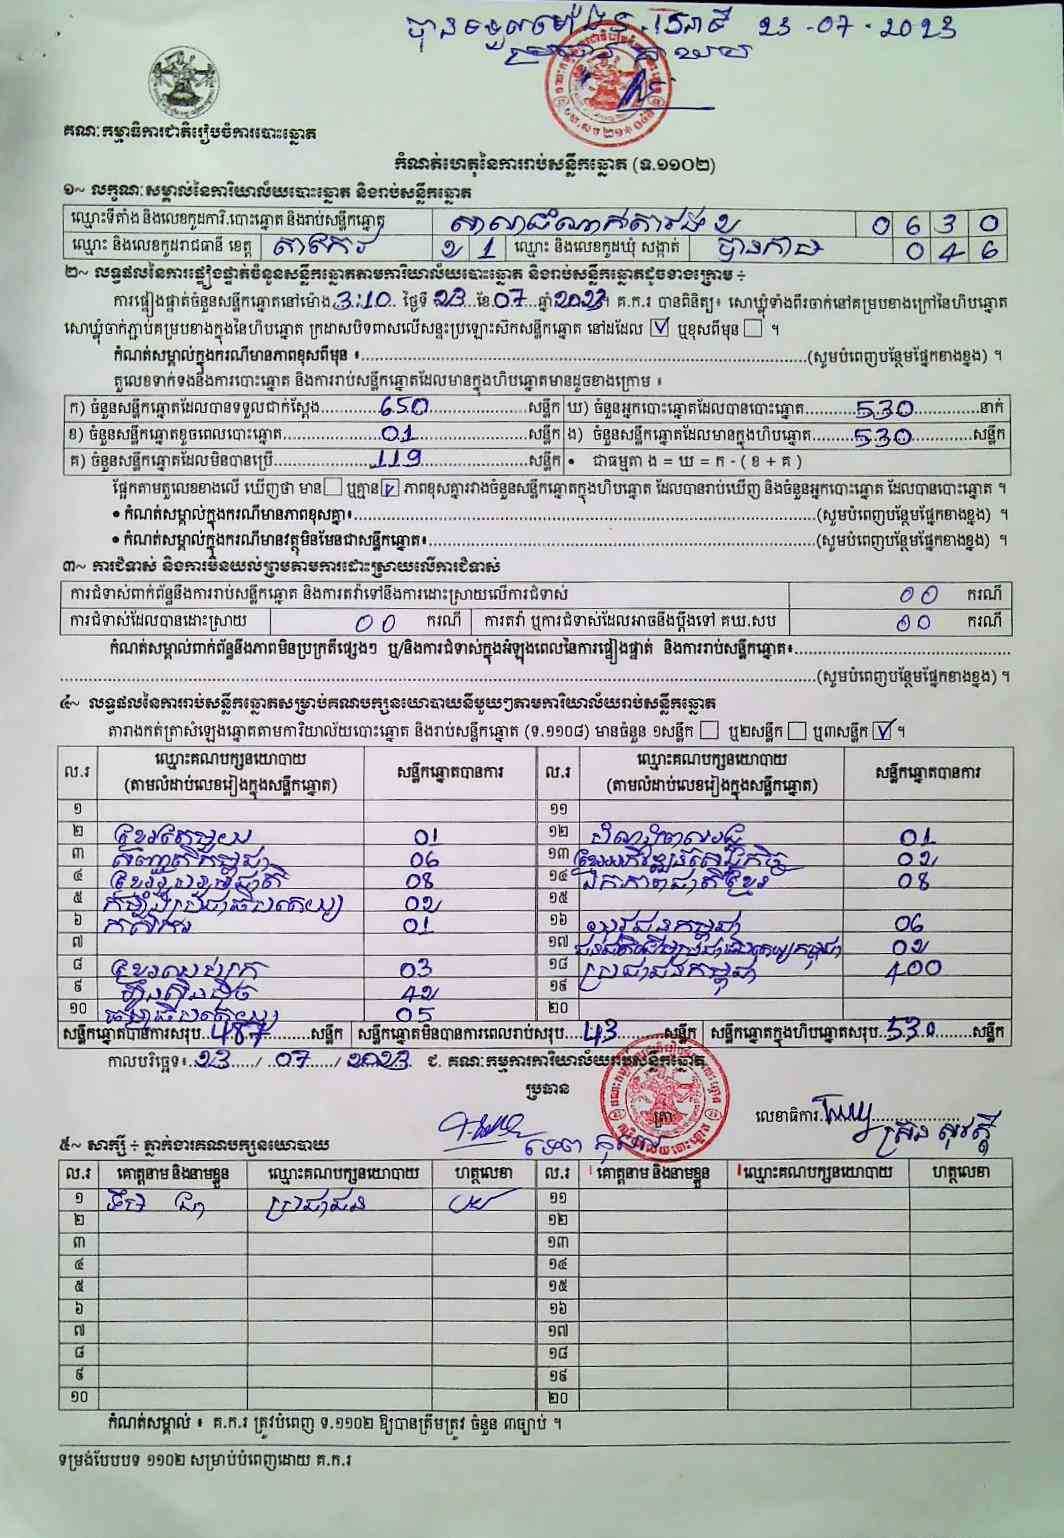 បានទទួលម៉ោង 5:15នាទី 23-07-2023
ប្រធាន គ.ឃ.ប
គណៈកម្មាធិការជាតិរៀបចំការបោះឆ្នោត
កំណត់ហេតុនៃការរាប់សន្លឹកឆ្នោត (ទ.១១០២)
១~ លក្ខណៈសម្គាល់នៃការិយាល័យបោះឆ្នោត និងរាប់សន្លឹកឆ្នោត
ឈ្មោះទីតាំង និងលេខកូដការិ.បោះឆ្នោត និងរាប់សន្លឹកឆ្នោត សាលាដំណាក់តារង ខ 0 6 3 0
ឈ្មោះ និងលេខកូដរាជធានី ខេត្ត តាកែវ 2 1 ឈ្មោះ និងលេខកូដឃុំ សង្កាត់ បានកាម 0 4 6
២~ លទ្ធផលនៃការផ្ទៀងផ្ទាត់ចំនួនសន្លឹកឆ្នោតតាមការិយាល័យបោះឆ្នោត និងរាប់សន្លឹកឆ្នោតដូចខាងក្រោម ÷
ការផ្ទៀងផ្ទាត់ចំនួនសន្លឹកឆ្នោតនៅម៉ោង 3:10 ថ្ងៃទី 23 ខែ 07 ឆ្នាំ 2023។ គ.ក.រ បានពិនិត្យ៖ សោឃ្លុំទាំងពីរចាក់នៅគម្របខាងក្រៅនៃហិបឆ្នោត
សោឃ្លុំចាក់ភ្ជាប់គម្របខាងក្នុងនៃហិបឆ្នោត ក្រដាសបិទពាសលើសន្ទះប្រឡោះស៊កសន្លឹកឆ្នោត នៅដដែល ☑ ឬខុសពីមុន ☐ ។
កំណត់សម្គាល់ក្នុងករណីមានភាពខុសពីមុន ៖ (សូមបំពេញបន្ថែមផ្នែកខាងខ្នង) ។
តួលេខទាក់ទងនឹងការបោះឆ្នោត និងការរាប់សន្លឹកឆ្នោតដែលមានក្នុងហិបឆ្នោតមានដូចខាងក្រោម ៖
ក) ចំនួនសន្លឹកឆ្នោតដែលបានទទួលជាក់ស្តែង 650 សន្លឹក ឃ) ចំនួនអ្នកបោះឆ្នោតដែលបានបោះឆ្នោត 530 នាក់
ខ) ចំនួនសន្លឹកឆ្នោតខូចពេលបោះឆ្នោត 01 សន្លឹក ង) ចំនួនសន្លឹកឆ្នោតដែលមានក្នុងហិបឆ្នោត 530 សន្លឹក
គ) ចំនួនសន្លឹកឆ្នោតដែលមិនបានប្រើ 119 សន្លឹក • ជាធម្មតា ង = ឃ = ក - ( ខ + គ )
ផ្អែកតាមតួលេខខាងលើ ឃើញថា មាន ☐ ឬគ្មាន ☑ ភាពខុសគ្នារវាងចំនួនសន្លឹកឆ្នោតក្នុងហិបឆ្នោត ដែលបានរាប់ឃើញ និងចំនួនអ្នកបោះឆ្នោត ដែលបានបោះឆ្នោត ។
• កំណត់សម្គាល់ក្នុងករណីមានភាពខុសគ្នា៖ (សូមបំពេញបន្ថែមផ្នែកខាងខ្នង) ។
• កំណត់សម្គាល់ក្នុងករណីមានវត្ថុមិនមែនជាសន្លឹកឆ្នោត៖ (សូមបំពេញបន្ថែមផ្នែកខាងខ្នង) ។
៣~ ការជំទាស់ និងការមិនយល់ព្រមតាមការដោះស្រាយលើការជំទាស់
ការជំទាស់ពាក់ព័ន្ធនឹងការរាប់សន្លឹកឆ្នោត និងការតវ៉ាទៅនឹងការដោះស្រាយលើការជំទាស់ 00 ករណី
ការជំទាស់ដែលបានដោះស្រាយ 00 ករណី ការតវ៉ា ឬការជំទាស់ដែលអាចនឹងប្តឹងទៅ គឃ.សប 00 ករណី
កំណត់សម្គាល់ពាក់ព័ន្ធនឹងភាពមិនប្រក្រតីផ្សេងៗ ឬ/និងការជំទាស់ក្នុងអំឡុងពេលនៃការផ្ទៀងផ្ទាត់ និងការរាប់សន្លឹកឆ្នោត៖
(សូមបំពេញបន្ថែមផ្នែកខាងខ្នង) ។
៤~ លទ្ធផលនៃការរាប់សន្លឹកឆ្នោតសម្រាប់គណបក្សនយោបាយនីមួយៗតាមការិយាល័យរាប់សន្លឹកឆ្នោត
តារាងកត់ត្រាសំឡេងឆ្នោតតាមការិយាល័យបោះឆ្នោត និងរាប់សន្លឹកឆ្នោត (ទ.១១០៨) មានចំនួន ១សន្លឹក ☐ ឬ២សន្លឹក ☐ ឬ៣សន្លឹក ☑ ។
ល.រ ឈ្មោះគណបក្សនយោបាយ (តាមលំដាប់លេខរៀងក្នុងសន្លឹកឆ្នោត) សន្លឹកឆ្នោតបានការ ល.រ ឈ្មោះគណបក្សនយោបាយ (តាមលំដាប់លេខរៀងក្នុងសន្លឹកឆ្នោត) សន្លឹកឆ្នោតបានការ
១ ១១
២ ខ្មែរតែមួយ 01 ១២ 01
៣ សញ្ជាតិកម្ពុជា 06 ១៣ ខ្មែរអភិវឌ្ឍន៍សេដ្ឋកិច្ច 02
៤ ខ្មែររួបរួមជាតិ 08 ១៤ ឯកភាពជាតិខ្មែរ 08
៥ កម្លាំងប្រជាធិបតេយ្យ 02 ១៥
៦ កសិករ 01 ១៦ យុវជនកម្ពុជា 06
៧ ១៧ ជនជាតិដើមប្រជាធិបតេយ្យកម្ពុជា 02
៨ ខ្មែរឈប់ក្រ 03 ១៨ ប្រជាជនកម្ពុជា 400
៩ ហ៊្វុនស៊ិនប៉ិច 42 ១៩
១០ ធម្មាធិបតេយ្យ 05 ២០
សន្លឹកឆ្នោតបានការសរុប 487 សន្លឹក សន្លឹកឆ្នោតមិនបានការពេលរាប់សរុប 43 សន្លឹក សន្លឹកឆ្នោតក្នុងហិបឆ្នោតសរុប 530 សន្លឹក
កាលបរិច្ឆេទ៖ 23 / 07 / 2023 ជ. គណៈកម្មការការិយាល័យរាប់សន្លឹកឆ្នោត
ប្រធាន
ត្រា លេខាធិការ
៥~ សាក្សី ÷ ភ្នាក់ងារគណបក្សនយោបាយ
ល.រ គោត្តនាម និងនាមខ្លួន ឈ្មោះគណបក្សនយោបាយ ហត្ថលេខា ល.រ គោត្តនាម និងនាមខ្លួន ឈ្មោះគណបក្សនយោបាយ ហត្ថលេខា
១ ទឹម ជា ប្រជាជន ១១
២ ១២
៣ ១៣
៤ ១៤
៥ ១៥
៦ ១៦
៧ ១៧
៨ ១៨
៩ ១៩
១០ ២០
កំណត់សម្គាល់ ៖ គ.ក.រ ត្រូវបំពេញ ទ.១១០២ ឱ្យបានត្រឹមត្រូវ ចំនួន ៣ច្បាប់ ។
ទម្រង់បែបបទ ១១០២ សម្រាប់បំពេញដោយ គ.ក.រ